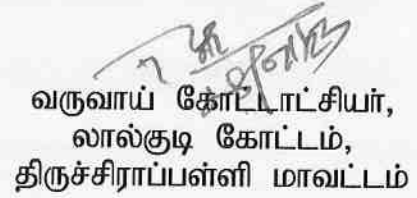 வருவாய் கோட்டாட்சியர்,
லால்குடி கோட்டம்,
திருச்சிராப்பள்ளி மாவட்டம்